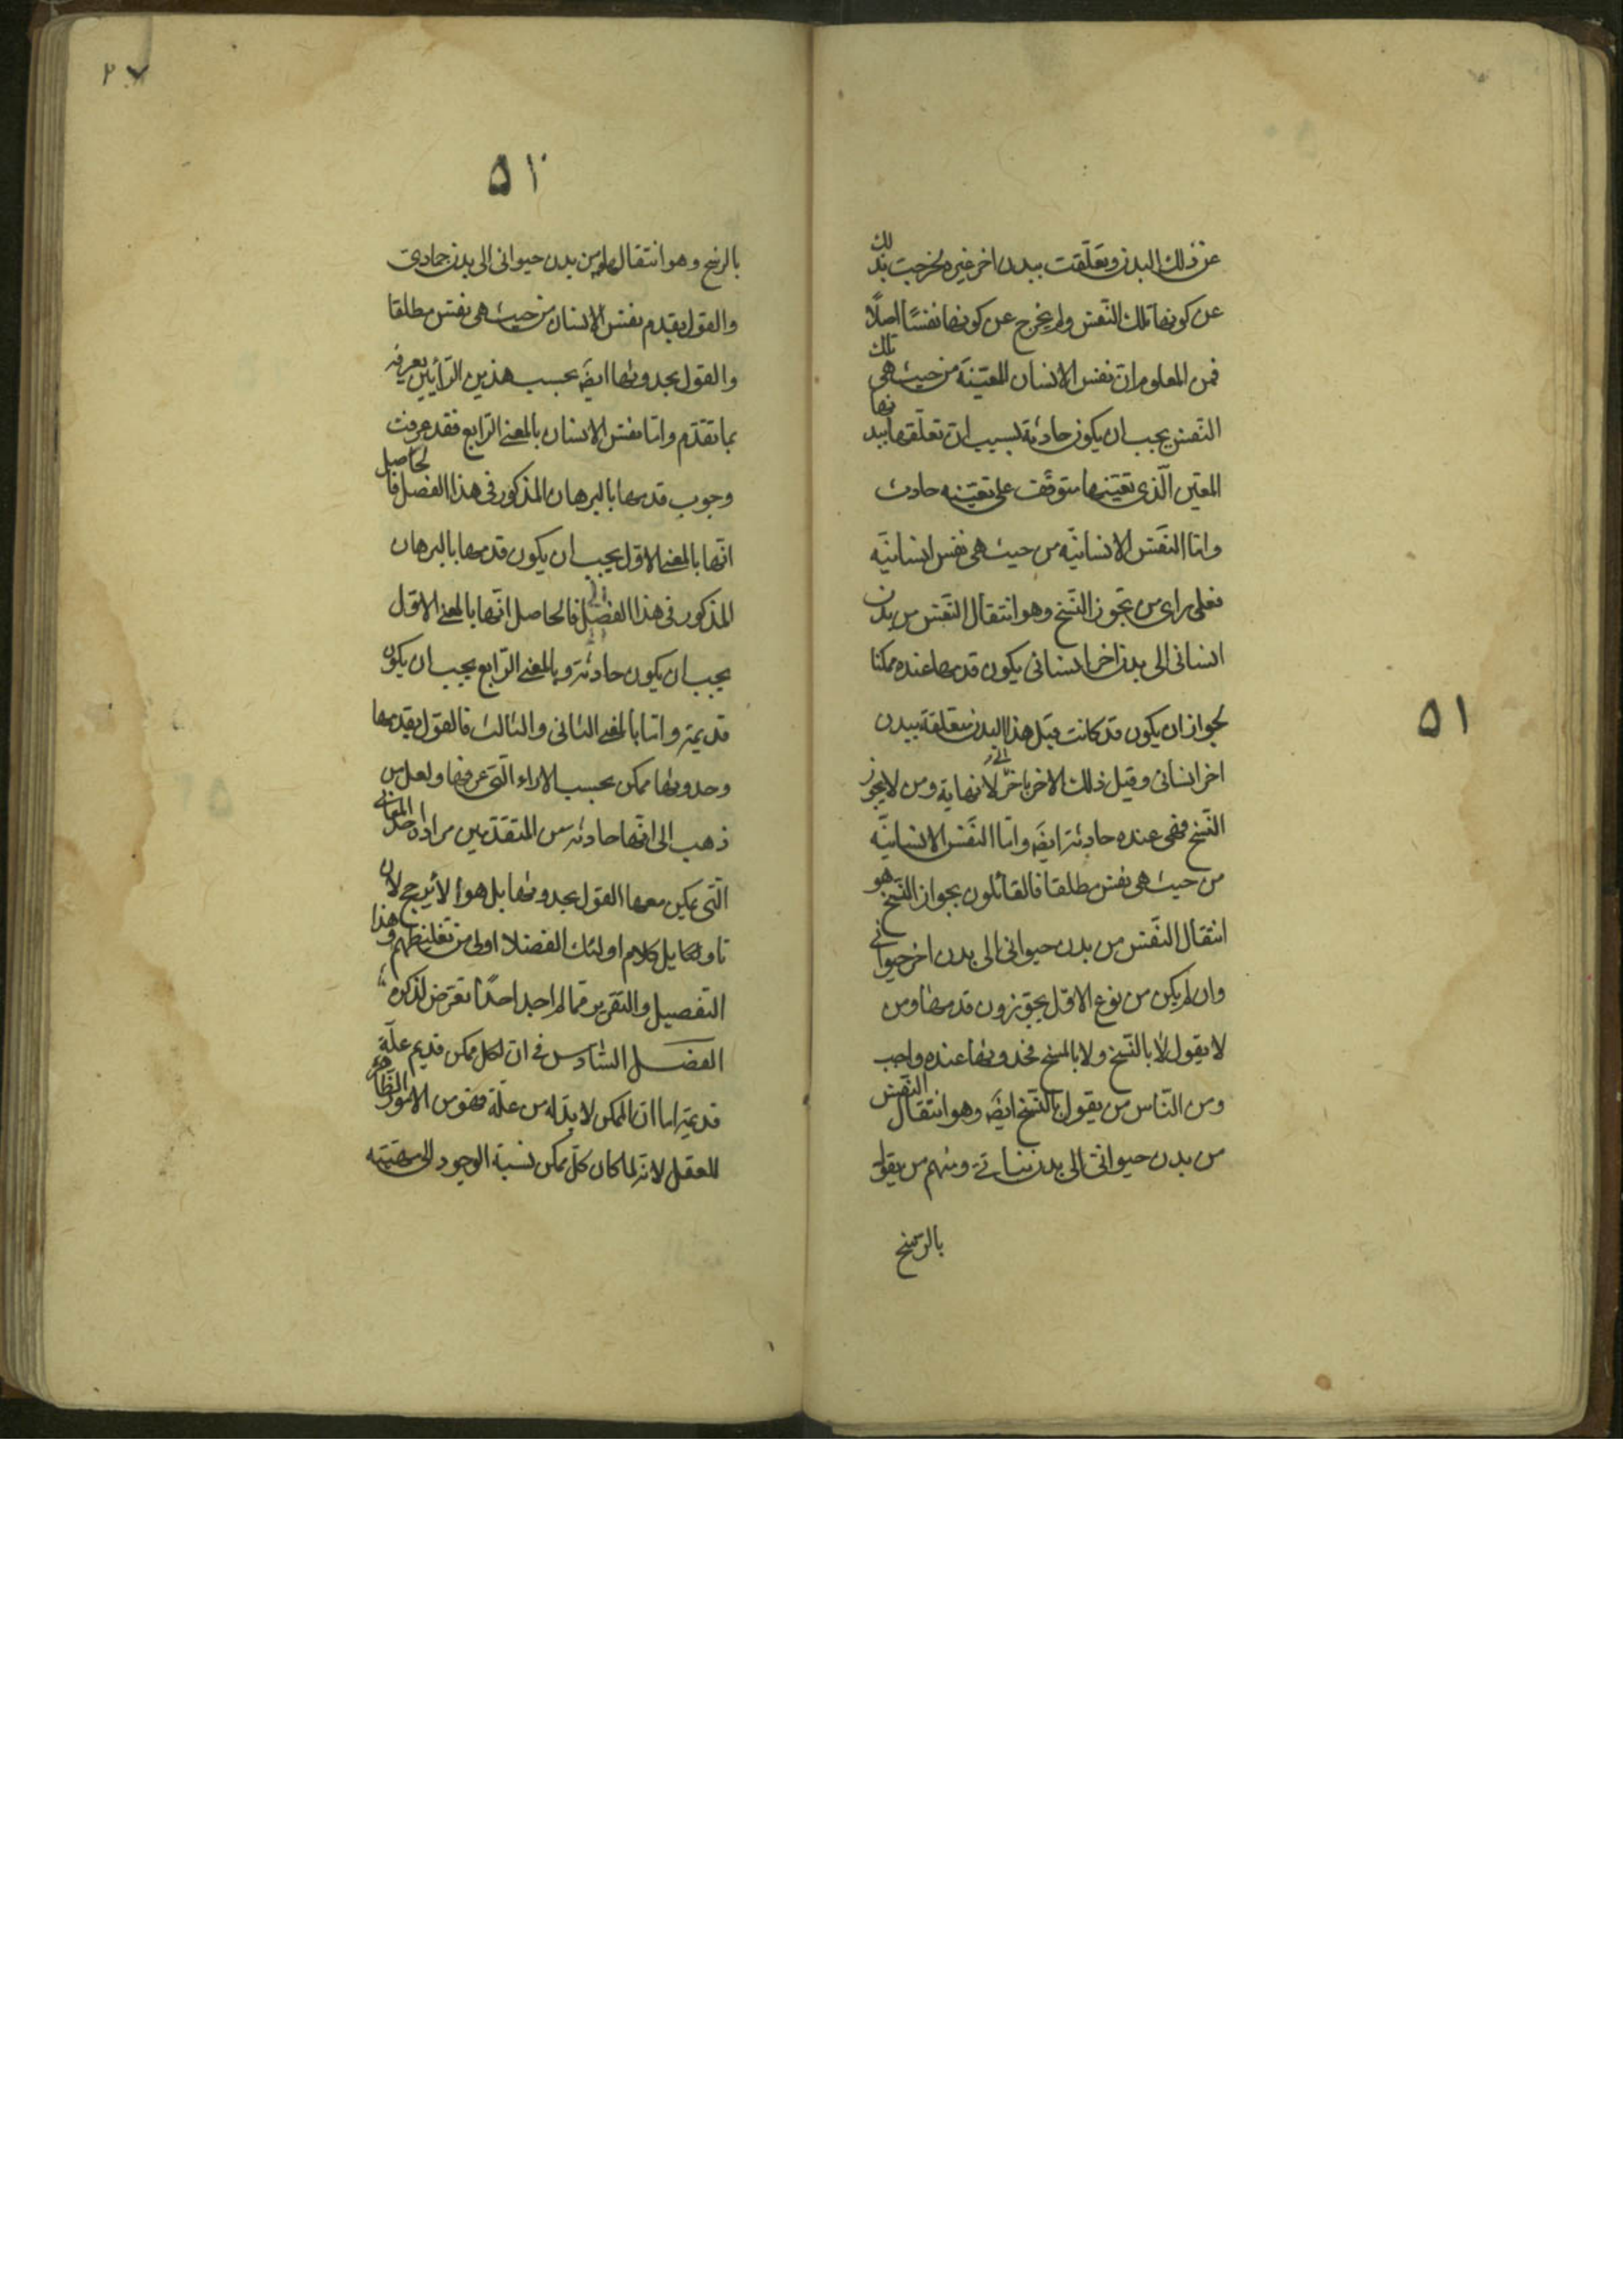 عن ذلك البدن وتعلقت ببدن اخر غيره لخرجت بذلك
عن كونها تلك النفس ولم يخرج عن كونها نفسًا اصلًا
فمن المعلوم ان نفس الانسان المعيّنة من حيث هى تلك
النفس يجب ان يكون حادثة بسبب ان تعلقها ببدنها
المعين الّذى تعيّنها متوقف على تعيّنه حادث
وامّا النفس الانسانيّه من حيث هى نفس انسانيّه
فعلى راى من يجوز النّسخ وهو انتقال النفس من بدن
انسانى الى بدن اخر انسانى يكون قدمها عنده ممكنا
لجواز ان يكون قد كانت قبل هذا البدن متعلقة ببدن
اخر انسانى وقبل ذلك الاخر باخر الى لا نهاية ومن لا يجوز
النّسخ فهى عنده حادثة ايضَ وامّا النفس الانسانيّه
من حيث هى نفس مطلقا فالقائلون بجواز النّسخ هو
انتقال النّفس من بدن حيوانى الى بدن اخر حيوانى
وان لم يكن من نوع الاول يجوّزون قدمها ومن
لا يقول لا بالنّسخ ولا بالمسخ فحدوثها عنده واجب
ومن النّاس من يقول بالنّسخ ايضَ وهو انتقال النفس
من بدن حيوانى الى بدن نباتى ومنهم من يقول
بالرسخ
٥١
٥١
بالرسخ وهو انتقالها من بدن حيوانى الى بدن جمادى
والقول بقدم نفس الانسان من حيث هى نفس مطلقا
والقول بحدوثها ايضَ بحسب هذين الرّأيين يعرف
بما تقدّم وامّا نفس الانسان بالمعنى الرّابع فقد عرفت
وجوب قدمها بالبرهان المذكور فى هذا الفصل فالحاصل
انّها بالمعنى الاوّل يجب ان يكون قدمها بالبرهان
المذكور فى هذا الفصل فالحاصل انّها بالمعنى الاوّل
يجب ان يكون حادثة وبالمعنى الرّابع يجب ان يكون
قديمة وامّا بالمعنى الثانى والثالث فالقول بقدمها
وحدوثها ممكن بحسب الاراء الّتى عرفتها ولعل من
ذهب الى انّها حادثة من المتقدّمين مراده احد المعانى
الّتى يمكن معها القول بحدوثها بل هو الأرجح لان
تاويل كلام اولئك الفضلا اولى من تغليطهم وهذا
التفصيل والتقرير ممّا لم اجد احدًا تعرّض لذكره
الفصل السّادس فى ان لكل ممكن قديم علّة
قديمة اما ان الممكن لا بدّ له من علّة فهو من الامور الظّاهرة
للعقل لانه لما كان كلّ ممكن نسبة الوجود الى مهيّته